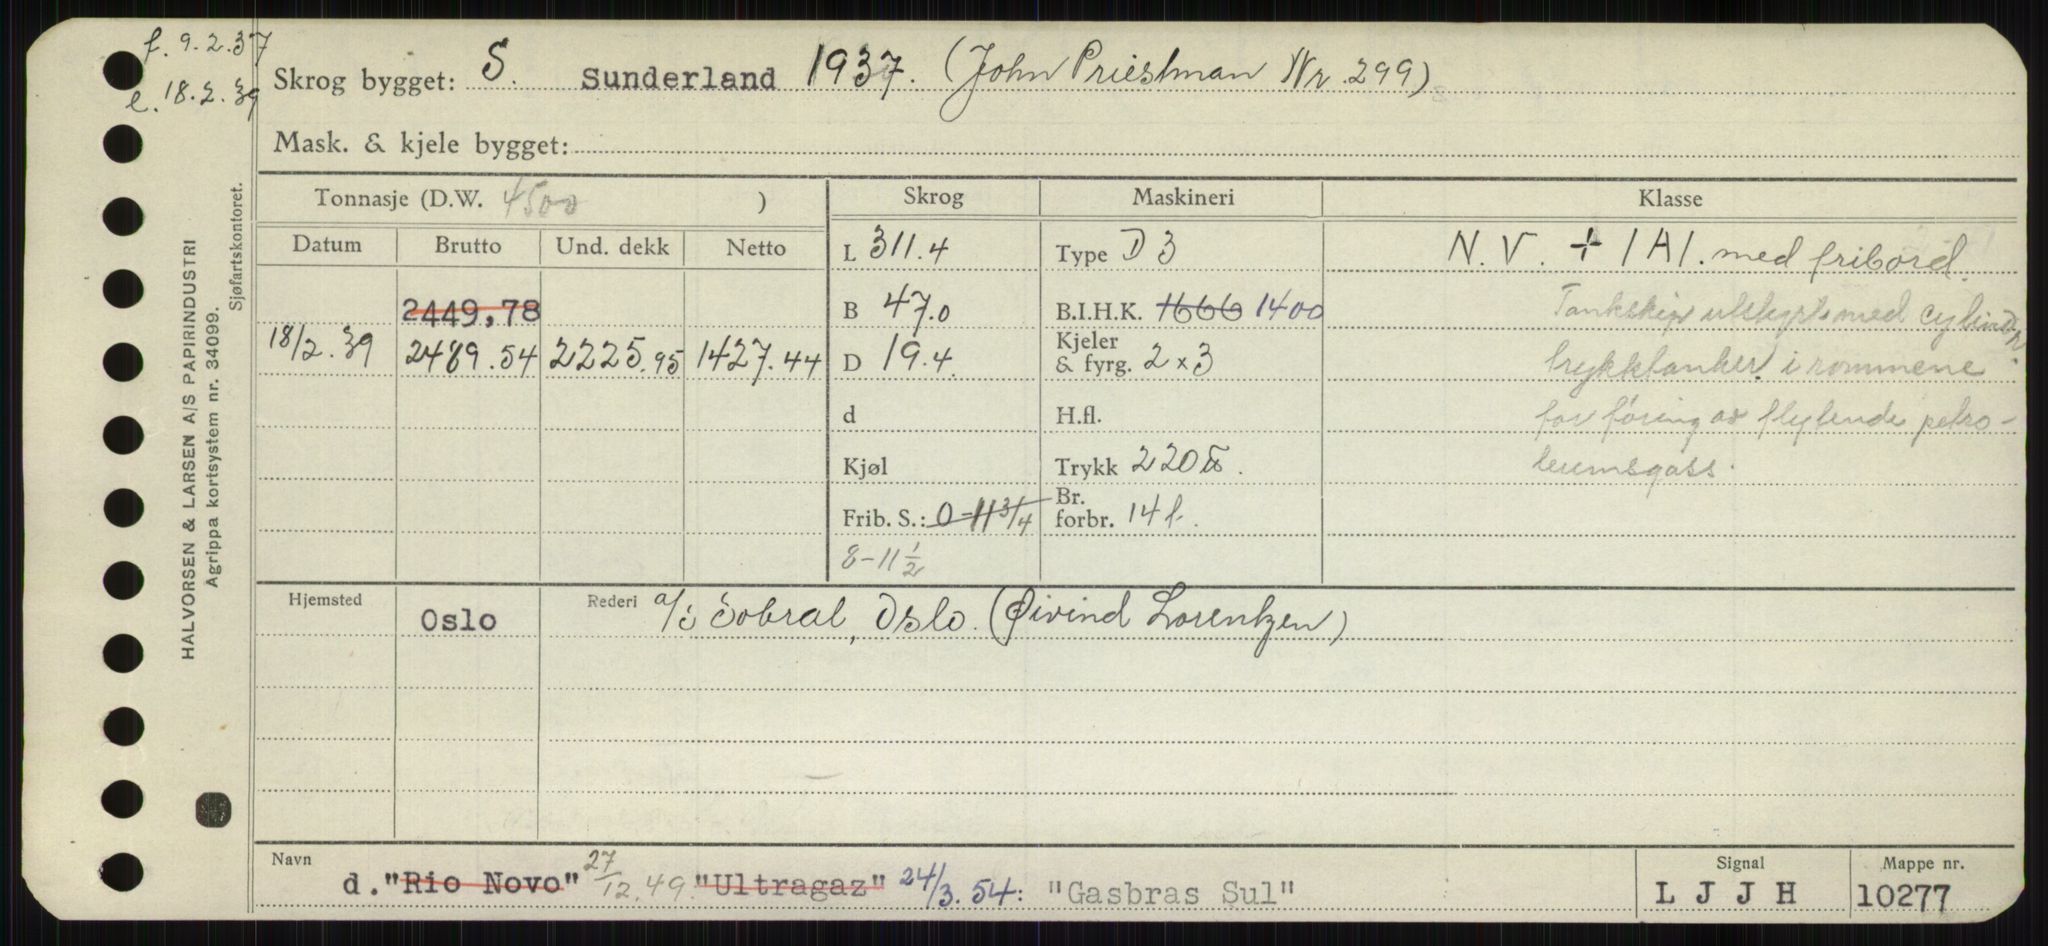 f. 9.2.37
l. 18.2.39
Skrog bygget: S. Sunderland 1937. (John Priestman Nr. 299)
Mask. & kjele bygget:
Tonnasje (D.W. 4500 )
Skrog
Maskineri
Klasse
Datum
Brutto
Und. dekk
Netto
L 311.4
Type D 3
N. V. + 1A1. med fribord.
2449,78
B 47.0
B.I.H.K. 1666 1400
Tankskip utstyrt med cylindr.
18/2.39
2489.54
2225.95
1427.44
D 19.4
Kjeler
& fyrg. 2 x 3
trykktanker i rommene
d
H.fl.
for föring av flytende petro-
Kjøl
Trykk 220 lb.
leumsgass.
Frib. S.: 0-11 3/4
Br.
forbr. 14 t.
8-11 1/2
Hjemsted
Oslo
Rederi
a/s Sobral, Oslo. (Øivind Lorentzen)
Navn
d. "Rio Novo" 27/12.49. "Ultragaz" 24/3.54: "Gasbras Sul"
Signal
L J J H
Mappe nr.
10277
HALVORSEN & LARSEN A/S PAPIRINDUSTRI
Agrippa kortsystem nr. 34099.
Sjøfartskontoret.